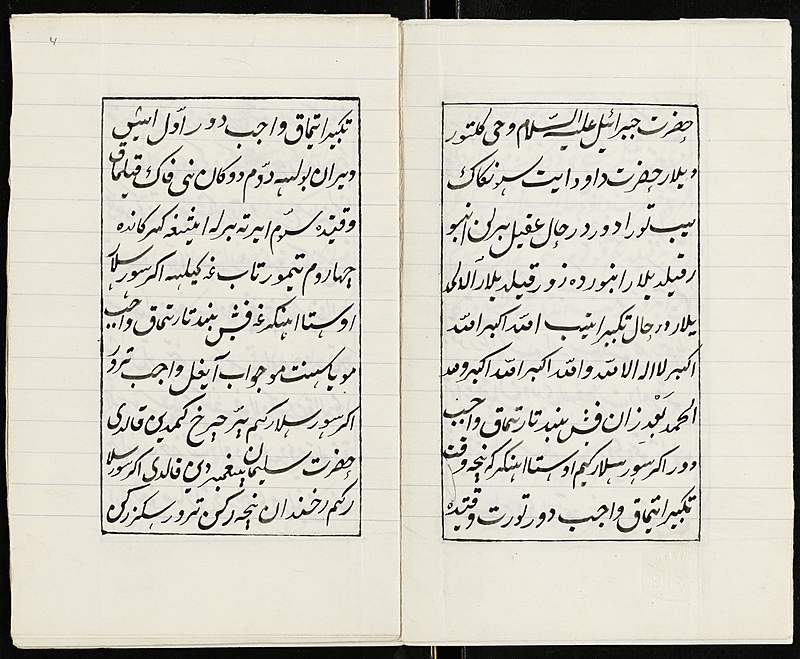 حضرت جبرائیل علیه السلام وحی کلتور
دیلار حضرت داود ایت سونکاک
یب تورادور درحال عقیل بیرلن انبو
رقیلدیلار انبورده زور قیلدیلار آلالمد
یلار درحال تکبیر ایتیب الله اکبر الله
اکبر لا اله الا الله والله اکبر الله اکبر ولله
الحمد بعد زان فش بند تارتماق واجب
دور اکر سورسلار کیم اوستا اهنکر که نیچه وقت
تکبیر ایتماق واجب دور تورت وقتیده
۴
تکبیر ایتماق واجب دور اول ایش
ویران بولسه دوم دوکان نی فاک قیلماق
وقتیده سوم ایرته بیرله ایشغه کیرکانده
چهاروم تیمور تاب غه کیلسه اکر سورسلا
اوستا اهنکرغه فش بند تارتماق واجب
مو یا سنت مو جواب آیغل واجب ترور
اکر سورسلار کیم بیر چرخ کمدین قالدی
حضرت سلیمان پیغمبردین قالدی اکر سورسلا
رکیم رخندان نیچه رکن ترور سکز رکن